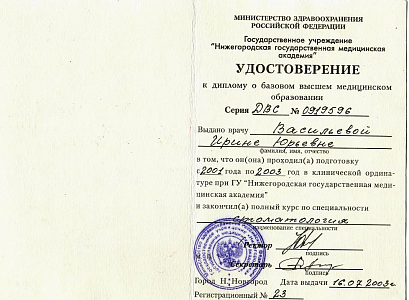 МИНИСТЕРСТВО ЗДРАВООХРАНЕНИЯ
РОССИЙСКОЙ ФЕДЕРАЦИИ
Государственное учреждение
"Нижегородская государственная медицинская
академия"
УДОСТОВЕРЕНИЕ
к диплому о базовом высшем медицинском
образовании
Серия ДВС № 0919596
Выдано врачу Васильевой
Ирине Юрьевне
фамилия, имя, отчество
в том, что он(она) проходил(а) подготовку
с 2001 года по 2003 год в клинической ордина-
туре при ГУ "Нижегородская государственная меди-
цинская академия"
и закончил(а) полный курс по специальности
стоматология
наименование специальности
Ректор
подпись
Секретарь
подпись
Город Н. Новгород Дата выдачи 16.07.2003г.
Регистрационный № 23